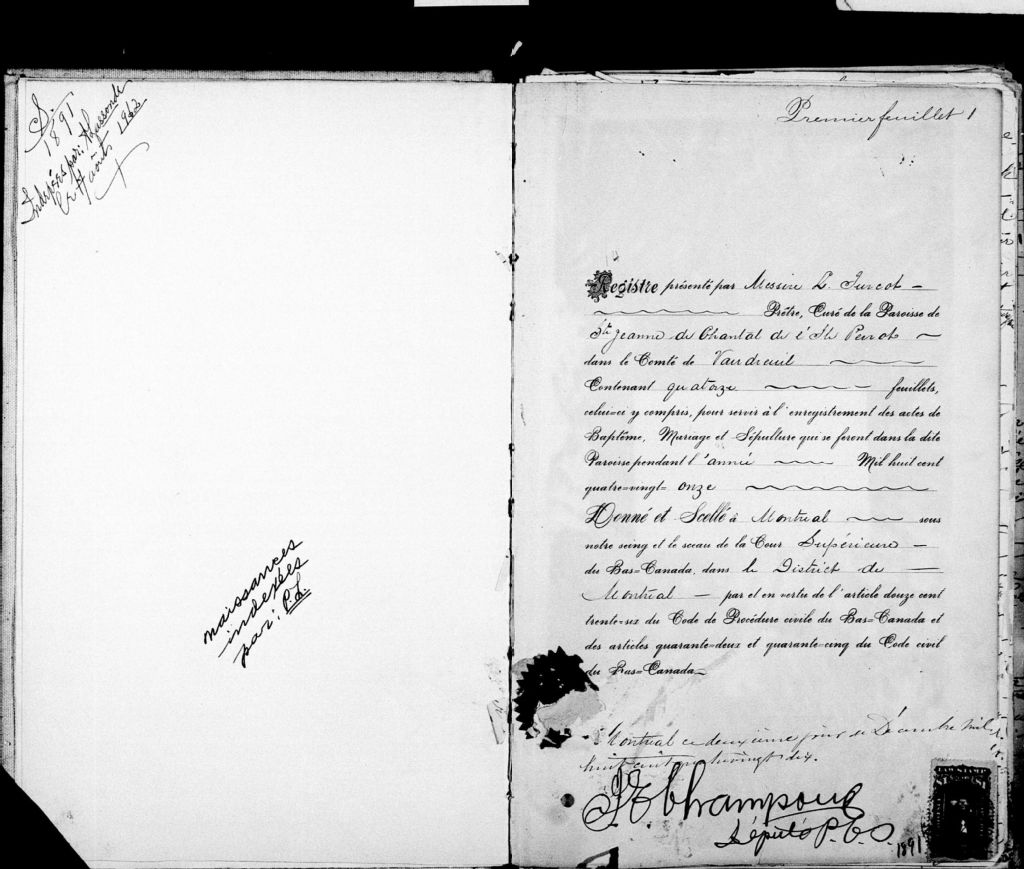 S.
1891
Indexées par:
le 4 août 1942
naissances
indexées
par: P.L.
Premier feuillet 1
Registre présenté par Messire L. Turcot
Prêtre, Curé de la Paroisse de
Ste Jeanne de Chantal de l'Ile Perrot
dans le Comté de Vaudreuil
Contenant quatorze feuillets,
celui-ci y compris, pour servir à l'enregistrement des actes de
Baptême, Mariage et Sépulture qui se feront dans la dite
Paroisse pendant l'année Mil huit cent
quatre-vingt-onze
Donné et Scellé à Montréal sous
notre seing et le sceau de la Cour Supérieure
du Bas-Canada, dans le District de
Montréal par et en vertu de l'article douze cent
trente-six du Code de Procédure civile du Bas-Canada et
des articles quarante-deux et quarante-cinq du Code civil
du Bas-Canada
Montréal ce deuxième jour de Décembre mil
huit cent quatrevingt dix.
Champoux
Député P.C.S.
1891
LAW STAMP